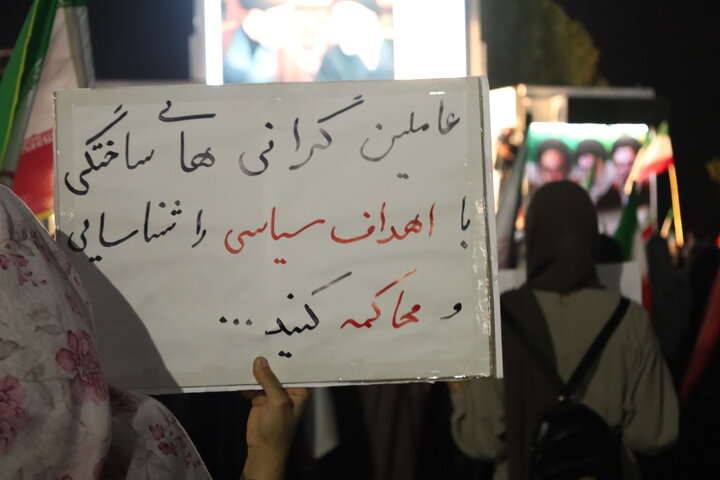 عاملین گرانی هایی ساختگی
با اهداف سیاسی را شناسایی
و محاکمه کنید...